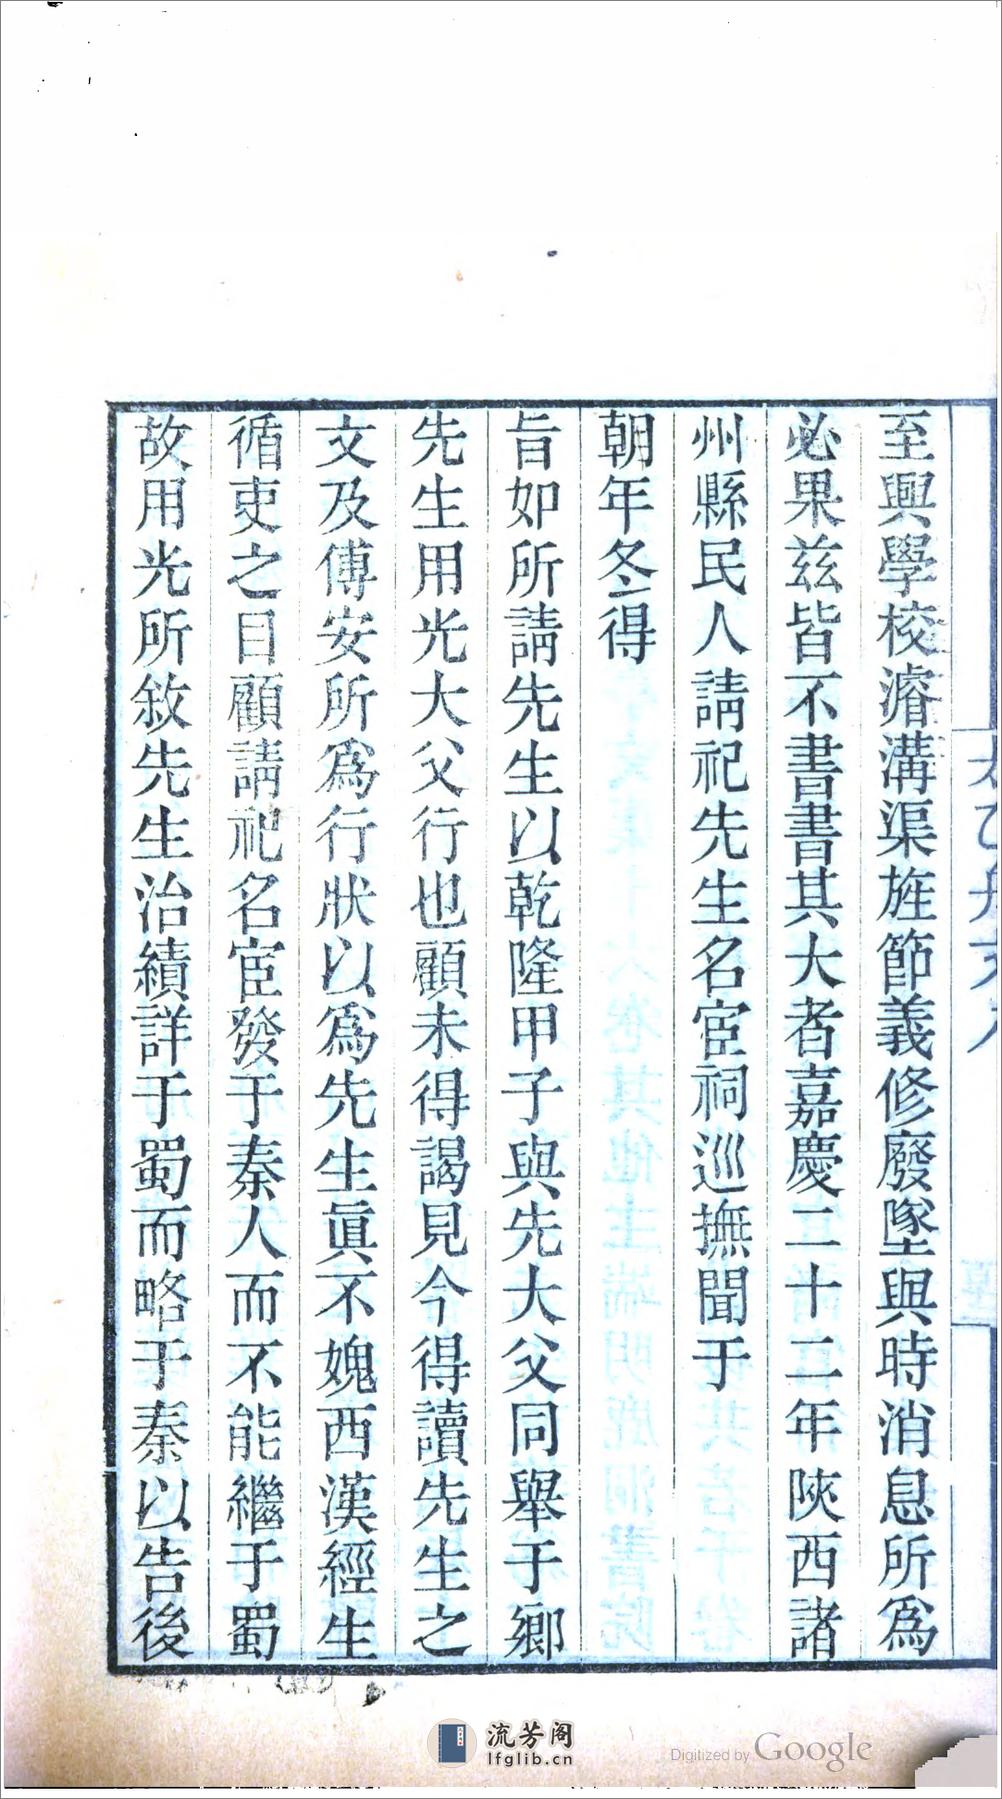 至興學校濬溝渠旌節義修廢墜與時消息所爲
必果兹皆不書書其大者嘉慶二十二年陝西諸
州縣民人請祀先生名宦祠巡撫聞于
朝年冬得
旨如所請先生以乾隆甲子與先大父同舉于鄉
先生用光大父行也顧未得謁見今得讀先生之
文及傅安所爲行狀以爲先生眞不媿西漢經生
循吏之目顧請祀名宦發于秦人而不能繼于蜀
故用光所敘先生治績詳于蜀而略于秦以告後
流芳阁
lfglib.cn
Digitized by Google